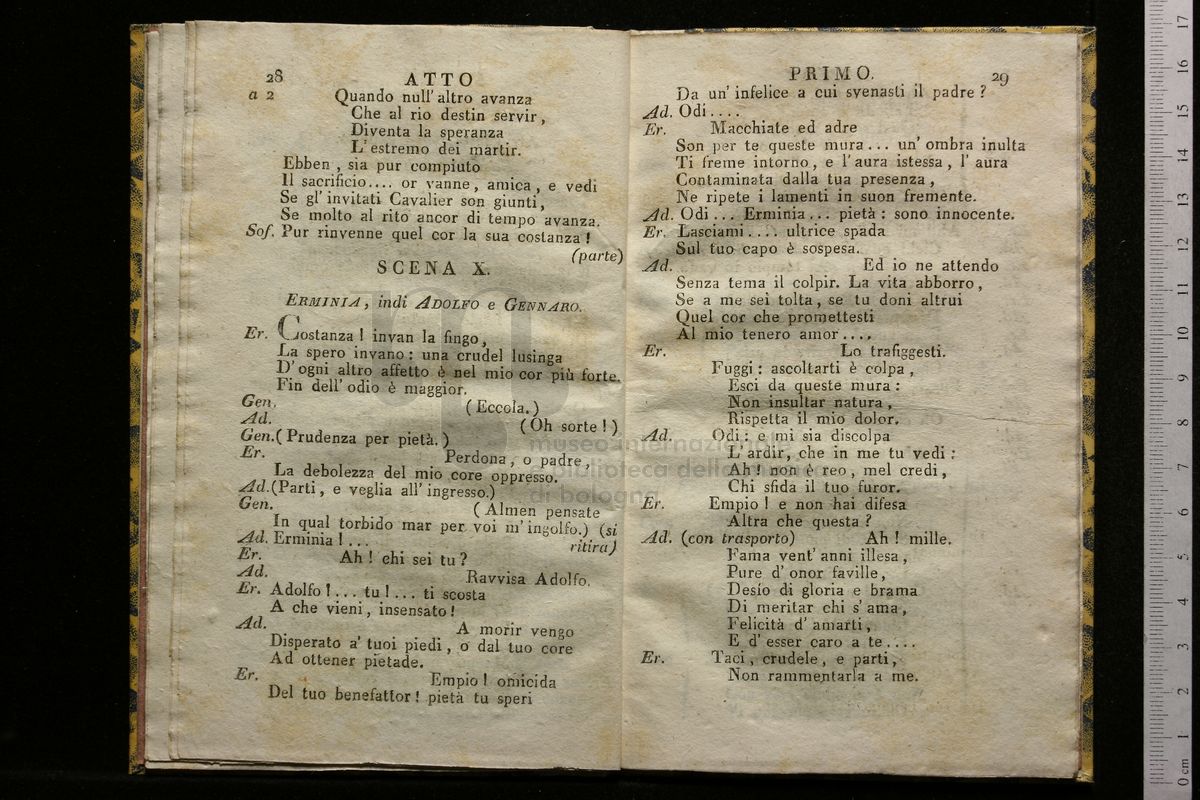 28 ATTO
a 2 Quando null' altro avanza
Che al rio destin servir,
Diventa la speranza
L'estremo dei martir.
Ebben, sia pur compiuto
Il sacrificio.... or vanne, amica, e vedi
Se gl' invitati Cavalier son giunti,
Se molto al rito ancor di tempo avanza.
Sof. Pur rinvenne quel cor la sua costanza!
(parte)
SCENA X.
ERMINIA, indi ADOLFO e GENNARO.
Er. Costanza! invan la fingo,
La spero invano: una crudel lusinga
D' ogni altro affetto è nel mio cor più forte,
Fin dell' odio è maggior.
Gen. (Eccola.)
Ad. (Oh sorte!)
Gen. (Prudenza per pietà.)
Er. Perdona, o padre,
La debolezza del mio core oppresso.
Ad. (Parti, e veglia all' ingresso.)
Gen. (Almen pensate
In qual torbido mar per voi m' ingolfo.) (si
ritira)
Ad. Erminia!...
Er. Ah! chi sei tu?
Ad. Ravvisa Adolfo.
Er. Adolfo!... tu!... ti scosta
A che vieni, insensato!
Ad. A morir vengo
Disperato a' tuoi piedi, o dal tuo core
Ad ottener pietade.
Er. Empio! omicida
Del tuo benefattor! pietà tu speri
PRIMO. 29
Da un' infelice a cui svenasti il padre?
Ad. Odi....
Er. Macchiate ed adre
Son per te queste mura... un' ombra inulta
Ti freme intorno, e l' aura istessa, l' aura
Contaminata dalla tua presenza,
Ne ripete i lamenti in suon fremente.
Ad. Odi... Erminia... pietà: sono innocente.
Er. Lasciami.... ultrice spada
Sul tuo capo è sospesa.
Ad. Ed io ne attendo
Senza tema il colpir. La vita abborro,
Se a me sei tolta, se tu doni altrui
Quel cor che promettesti
Al mio tenero amor....
Er. Lo trafiggesti.
Fuggi: ascoltarti è colpa,
Esci da queste mura:
Non insultar natura,
Rispetta il mio dolor.
Ad. Odi: e mi sia discolpa
L' ardir, che in me tu vedi:
Ah! non è reo, mel credi,
Chi sfida il tuo furor.
Er. Empio! e non hai difesa
Altra che questa?
Ad. (con trasporto) Ah! mille.
Fama vent' anni illesa,
Pure d' onor faville,
Desío di gloria e brama
Di meritar chi s' ama,
Felicità d' amarti,
E d' esser caro a te....
Er. Taci, crudele, e parti,
Non rammentarla a me.
museo internazionale
e biblioteca della musica
di bologna
17
16
15
14
13
12
11
10
9
8
7
6
5
4
3
2
1
0 cm